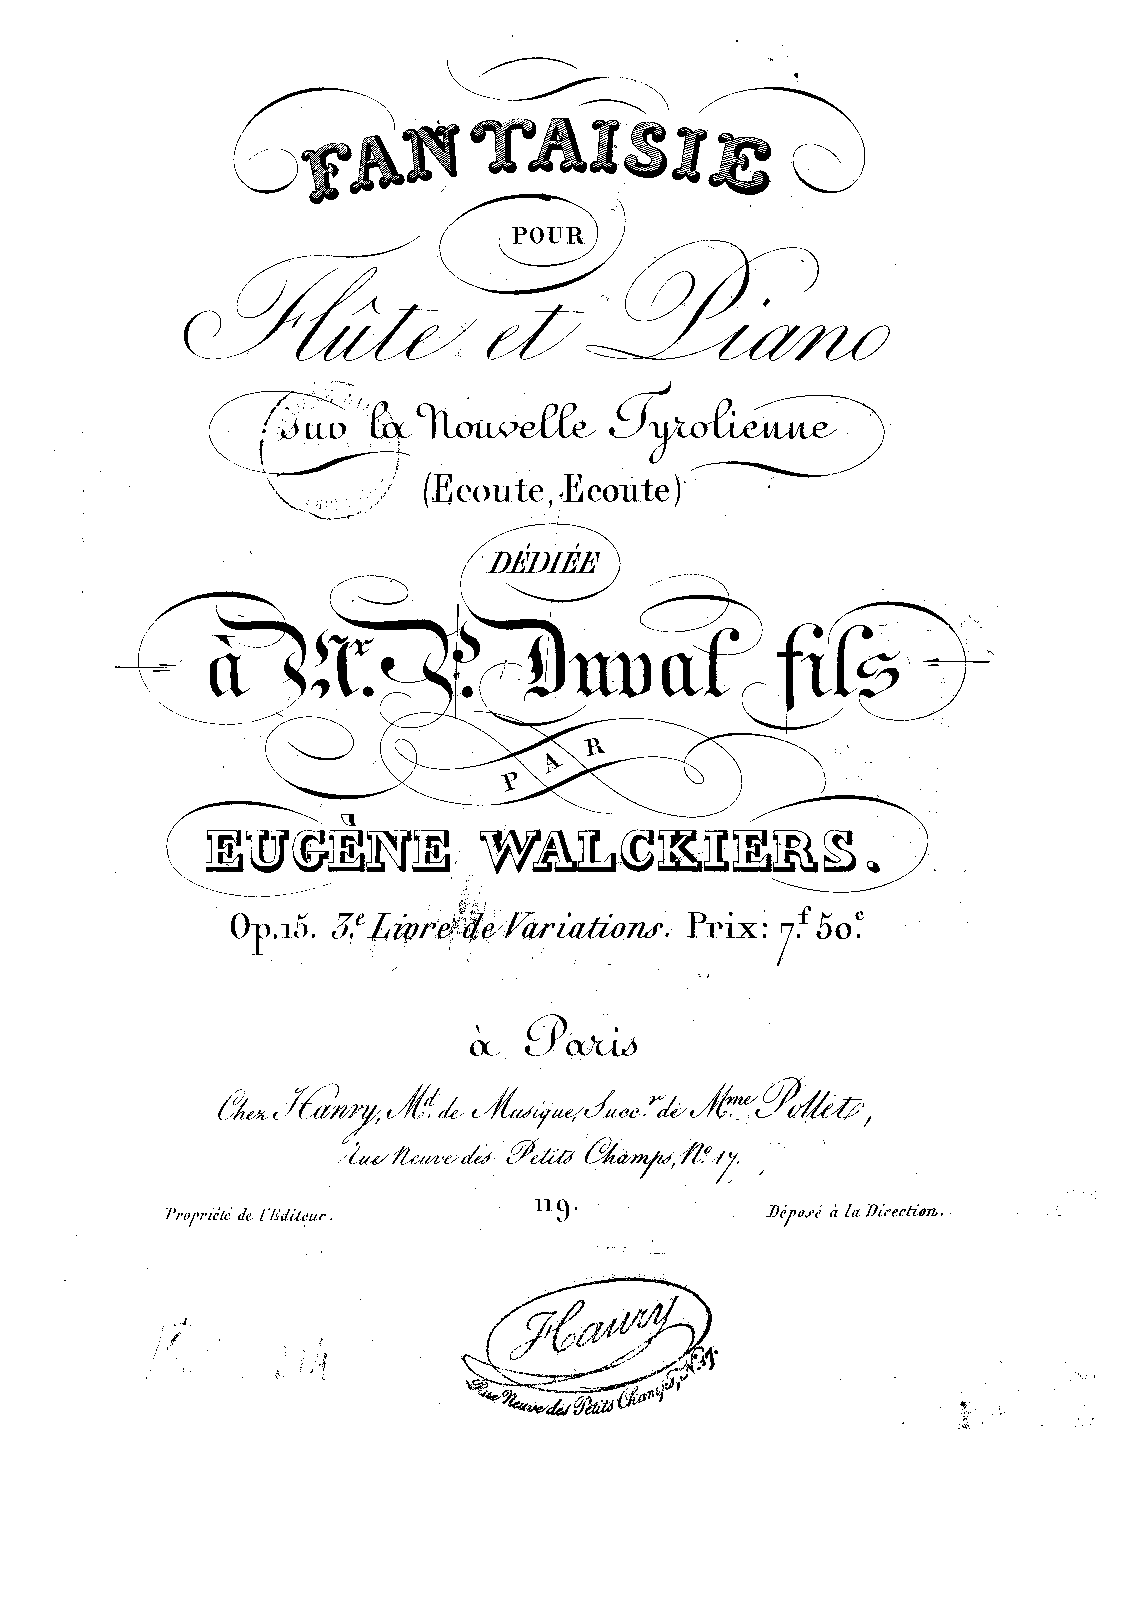 FANTAISIE
POUR
Flûte et Piano
Sur la Nouvelle Tyrolienne
(Ecoute, Ecoute)
DÉDIÉE
à Mr. P. Duval fils
PAR
EUGÈNE WALCKIERS.
Op. 15. 3.e Livre de Variations. Prix: 7.f 50.c
à Paris
Chez Hanry, Md. de Musique, Succ.r de Mme. Pollet,
Rue Neuve des Petits Champs, No. 17.
Propriété de l'Editeur. 119. Déposé à la Direction.
Hanry
Rue Neuve des Petits Champs, No. 17.